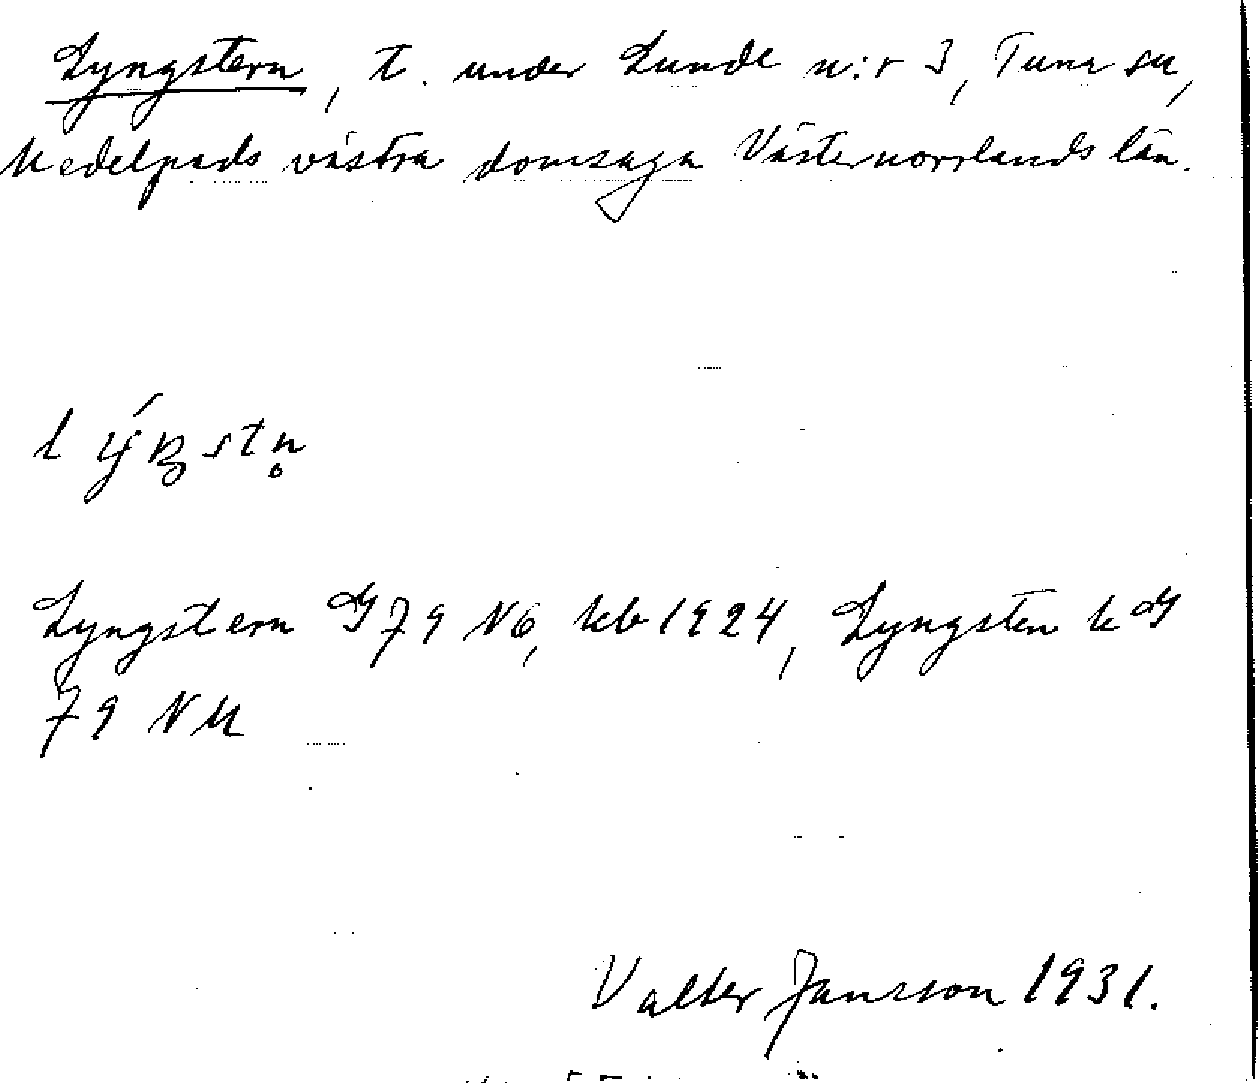 Lyngstern, t. under Lunde n:r 3, Tuna sn,
Medelpads västra domsaga Västernorrlands län.
lýŋstn̥
Lyngstern G 79 NÖ, kb 1924, Lyngsten k G
79 NM
Valter Jansson 1931.